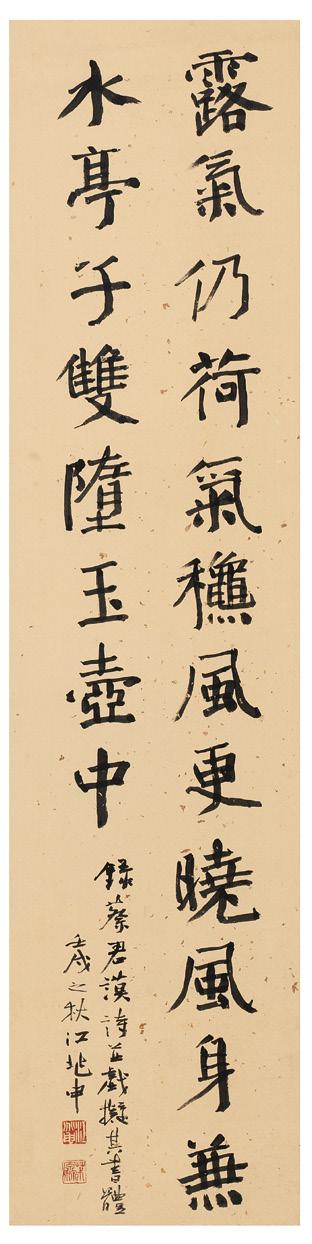 露氣仍荷氣龝風更曉風身兼
水亭子雙墮玉壺中
錄蔡君謨詩並戲擬其書體
壬戌之秋江兆申